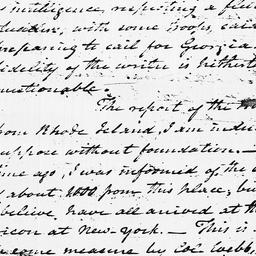 intelligence, respecting a fleet
with some troops, said
preparing to sail for Georgia.
fidelity of the writer is hitherto
unquestionable.
The report of the
from Rhode Island, I am induc
suppose without foundation. —
time ago, I was informed of the
about 1000 from this place, bu
believe have all arrived at th
at New-York. — This is
some measure by Col. Webb,